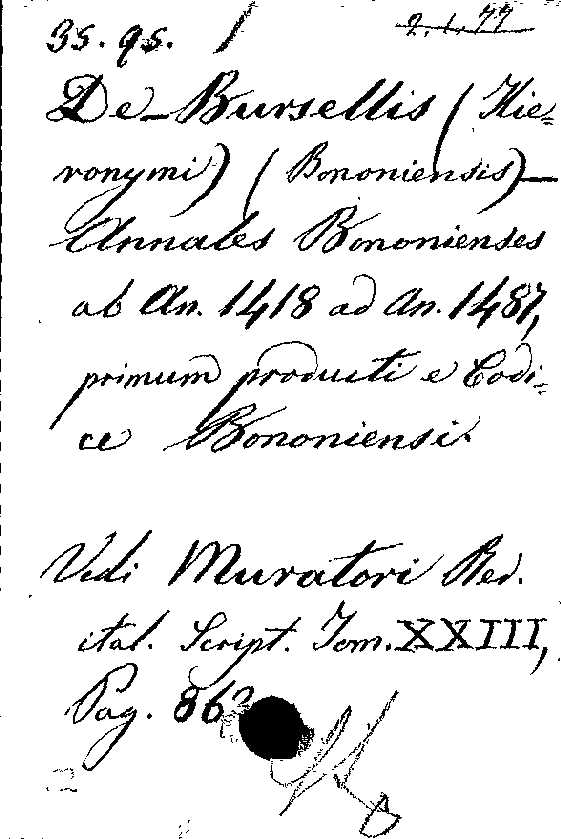 35. 95. 1 2.1.77
De-Bursellis (Hie=
ronymi) (Bononiensis)—
Annales Bononienses
ab An. 1418 ad An. 1487,
primum producti e Codi=
ce Bononiensi.
Vedi Muratori Rer.
ital. Script. Tom. XXIII,
Pag. 862